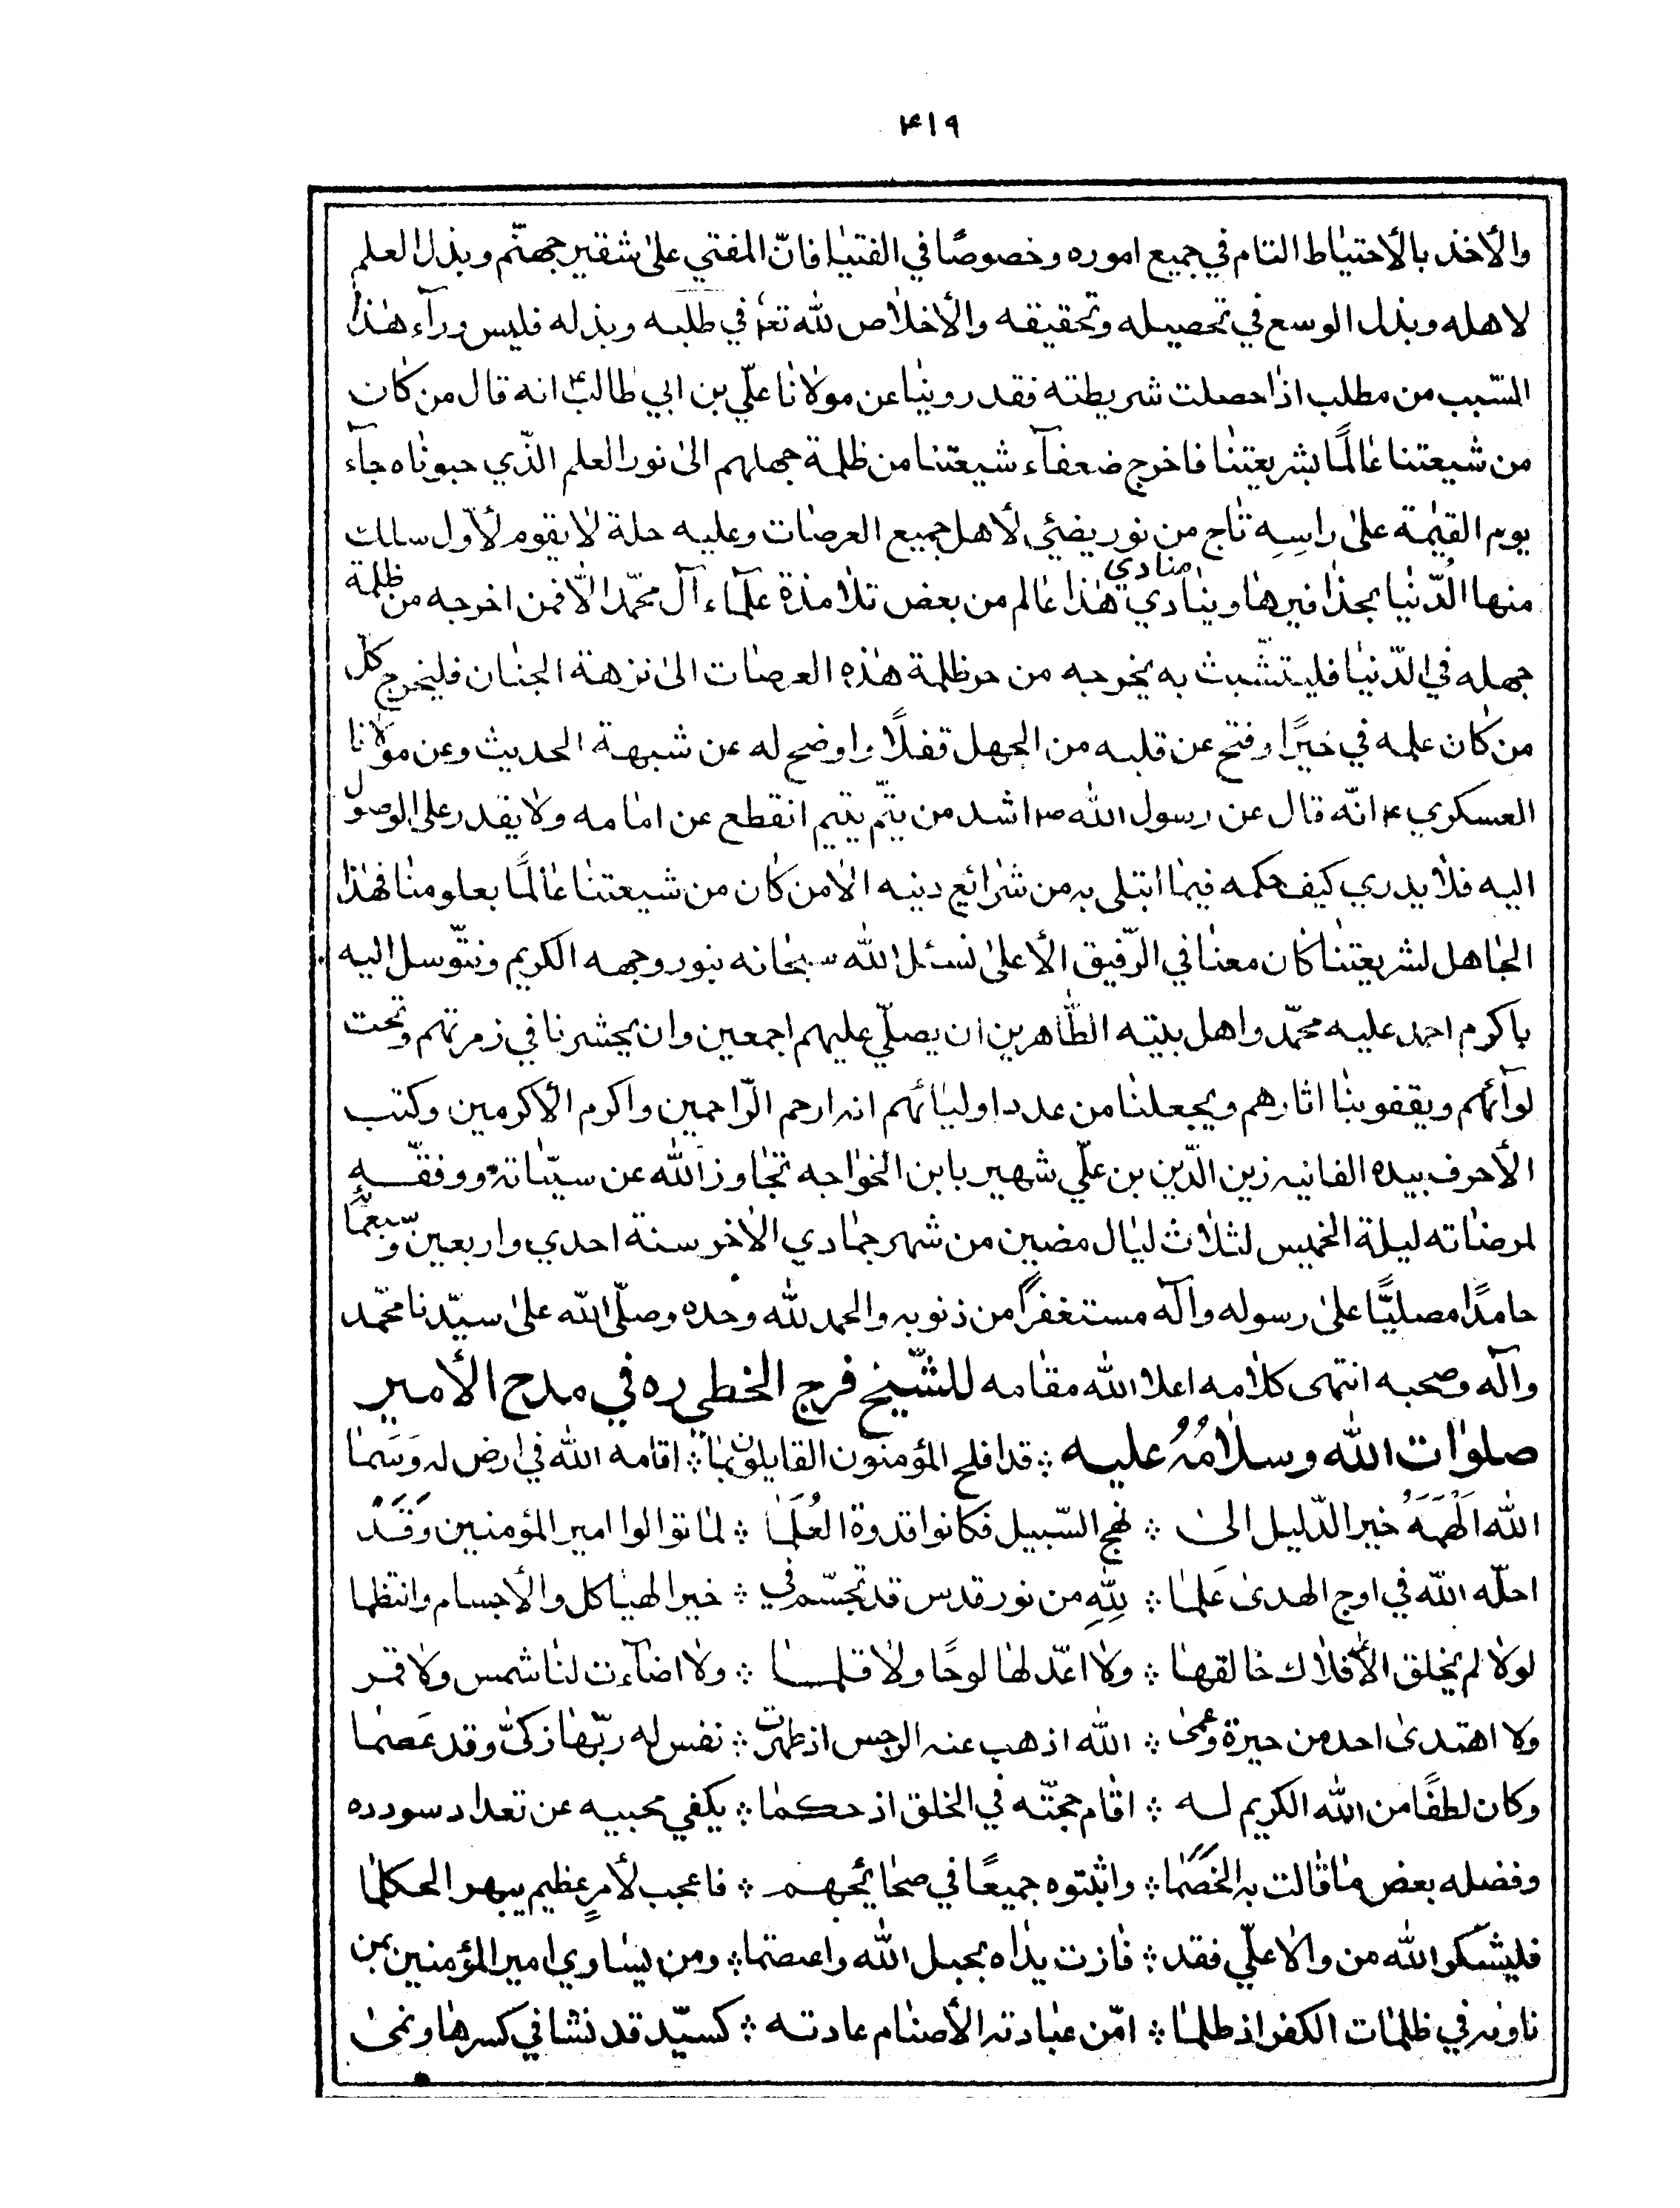 ۴۱۹
والأخذ بالأحتياط التام في جميع اموره وخصوصًا في الفتيا فانّ المفتي على شقير جهنّم وبذل العلم
لاهله وبذل الوسع في تحصيله وتحقيقه والأخلاص لله تعٰ في طلبه وبذله فليس ورآء هذا
السّبب من مطلب اذا حصلت شريطته فقد روينا عن مولانا علّي بن ابي طالب ع انه قال من كان
من شيعتنا عالمًا بشريعتنا فاخرج ضعفآء شيعتنا من ظلمة جهلهم الى نور العلم الذّي حبوناه جآء
يوم القيٰمة على راسِهِ تاج من نور يضئي لأهل جميع العرصات وعليه حلة لا يقوم لأوّل سلك
منها الدّنيا بحذافيرها وينادي منادي هذا عالم من بعض تلامذة علمآء آل محمّد الّا فمن اخرجه من ظلمة
جهله في الدّنيا فليتشّبث به يخرجه من حر ظلمة هذه العرصات الى نزهة الجنان فليخرج كلّ
من كان علمه في خيرًا وفتح عن قلبه من الجهل قفلًا واوضح له عن شبهة الحديث وعن مولانا
العسكري ع انّه قال عن رسول الله ص اشد من يتّم يتيم انقطع عن امامه ولا يقدر على الوصول
اليه فلا يدري كيف حكمه فيما ابتلى به من شرائع دينه الا من كان من شيعتنا عالمًا بعلومنا فهذا
الجاهل لشريعتنا كان معنا في الرّفيق الأعلى نسئل الله سبحانه بنور وجهه الكريم ونتّوسل اليه
باكرم احمد عليه محمّد واهل بيته الطّاهرين ان يصلّي عليهم اجمعين وان يحشرنا في زمرتهم وتحت
لوآئهم ويقفو بنا اثارهم ويجعلنا من عدد اوليائهم انه ارحم الرّاحمين واكرم الأكرمين وكتب
الأحرف بيده الفانيه زين الدّين بن علّي شهير بابن الخواجه تجاوز الله عن سيّئاته ووفقّه
لمرضاته ليلة الخميس لثلاث ليال مضين من شهر جمادي الاخر سنة احدي واربعين وتسعمأئة
حامدًا مصليًّا على رسوله وآله مستغفرًا من ذنوبه والحمد لله وحده وصلّى الله على سيّدنا محمّد
وآله وصحبه انتهى كلامه اعلا الله مقامه للشّيخ فرج الخطي ره في مدح الأمير
صلوات الله وسلامُهُ عليه ∴ قد افلح المؤمنون القايلون بما ∴ اقامه الله في ارض له وَسَما
الله اَلْهَمَهُ خير الدّليل الى ∴ نهج السّبيل فكانوا قدوة العُلَما ∴ لما توالوا امير المؤمنين وَقَدْ
احلّه الله في اوج الهدى عَلما ∴ لِلّٰهِ من نور قدس قد تجسّم في ∴ خير الهياكل والأجسام وانتظما
لولا لم يخلق الأفلاك خالقها ∴ ولا اعّد لها لوحًا ولا قلما ∴ ولا اضآءت لنا شمس ولا قمر
ولا اهتدى احد من حيرة وعمى ∴ الله اذهب عنه الرجس اذ طهرت ∴ نفس له ربّها زكىّ وقد عَصَما
وكان لطفًا من الله الكريم له ∴ اقام حجّته في الخلق اذ حكما ∴ يكفي محبيه عن تعداد سودده
وفضله بعض ما قالت به الخُصَمَا ∴ واثبتوه جميعًا في صحائحهم ∴ فاعجب لأمرٍ عظيم يبهر الحكما
فليشكر الله من والا علّي فقد ∴ فازت يداه بحبل الله واعصتما ∴ ومن يساوي امير المؤمنين بمن
ناوئه في ظلمات الكفر اذ ظلما ∴ امّن عبادته الأصنام عادته ∴ كسيّد قد نشا في كسرها ونمى